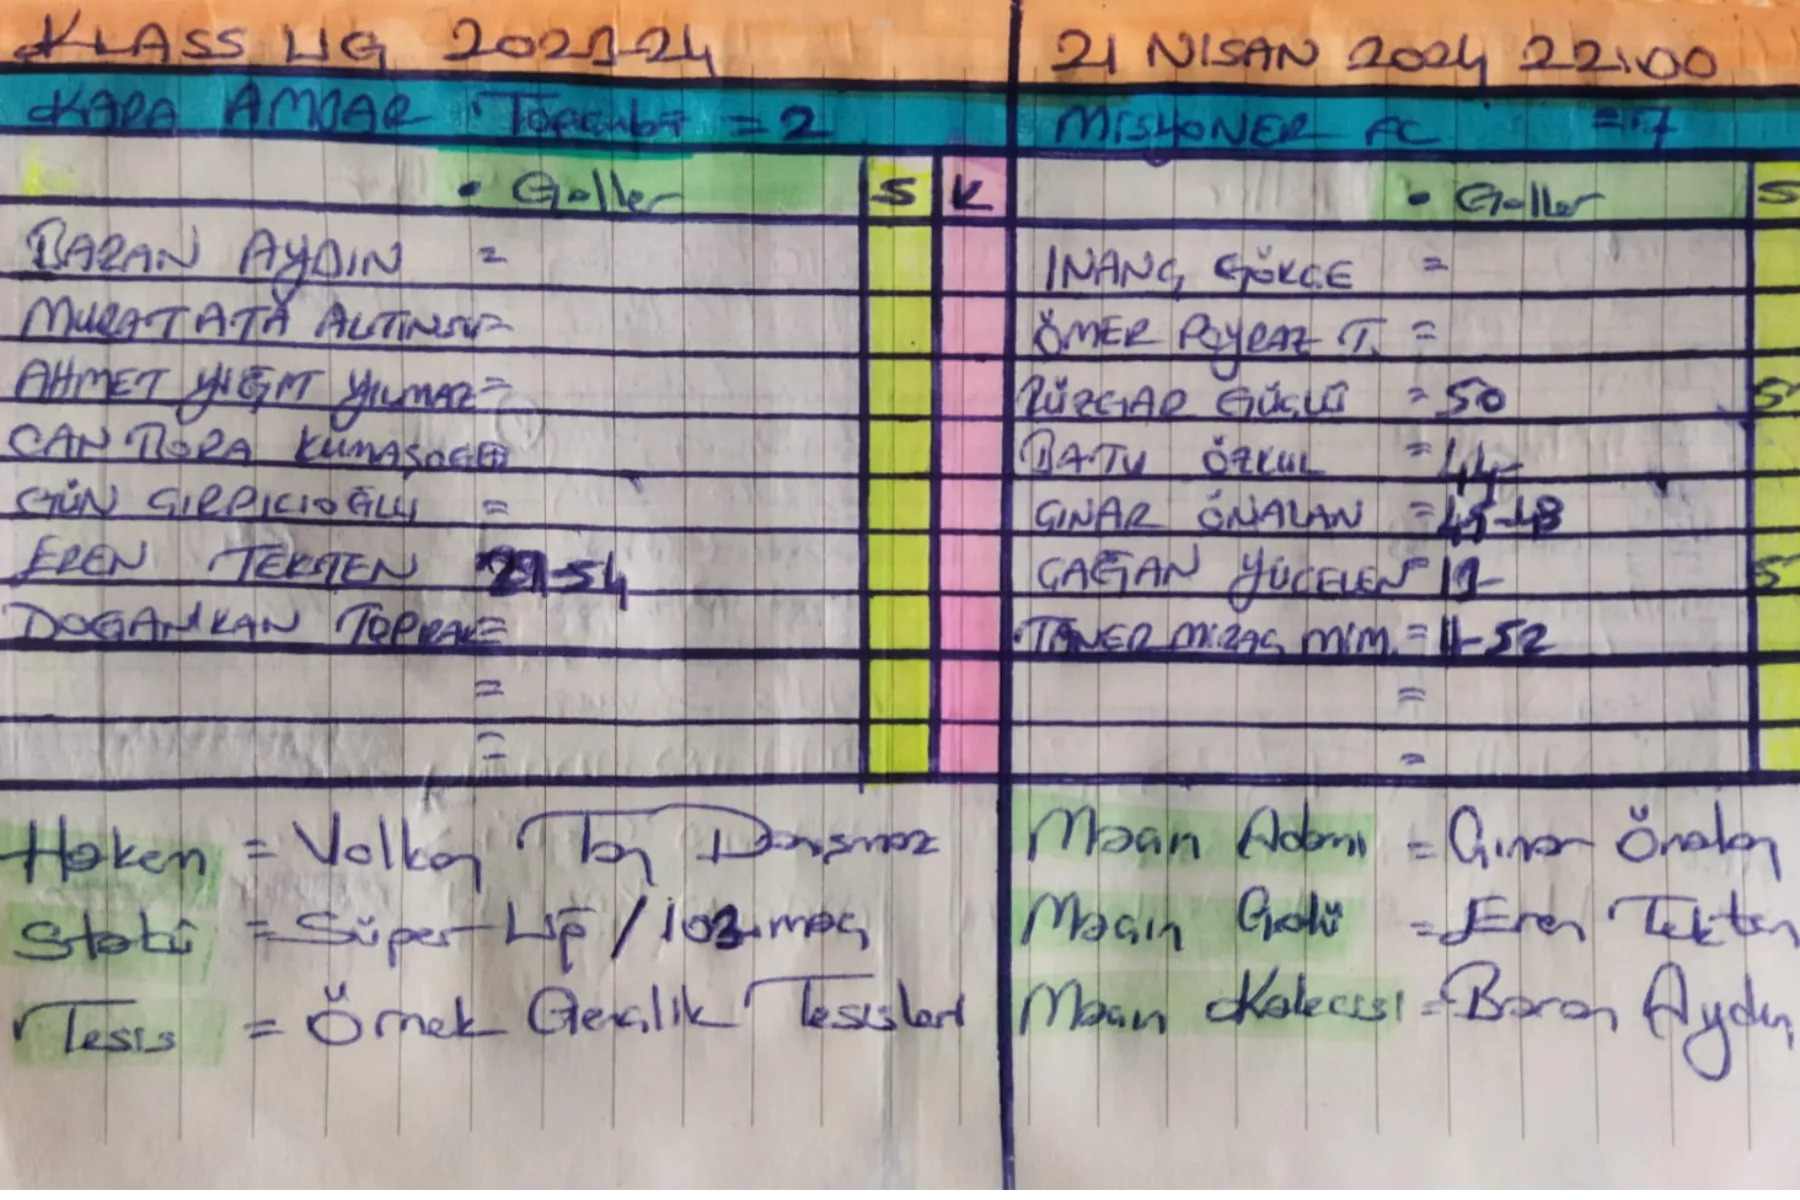 KLASS LİG 2023-24
21 NİSAN 2024 22:00
KARA AMBAR = 2
MİSYONER FC = 7
• Goller S K
• Goller S
BARAN AYDIN =
İNANÇ GÖKÇE =
MURAT ATA ALTINSU=
ÖMER POYRAZ T. =
AHMET YİĞİT YILMAZ=
RÜZGAR GÜÇLÜ = 50 S
CAN BORA
BATU ÖZKUL = 44-
GÜN ÇIRPICIOĞLU =
ÇINAR ÖNALAN = 45-48
EREN TEKTEN 29-54
ÇAĞAN YÜCELEN = 19- S
DOĞANKAN TOPRAK=
TANER MİRAÇ MİM. = 11-52
=
=
=
=
Hakem = Volkan Tan Danışmaz
Statü = Süper Lig / 103. maç
Tesis = Örnek Gençlik Tesisleri
Maçın Adamı = Çınar Önalan
Maçın Golü = Eren Tekten
Maçın Kalecisi = Baran Aydın